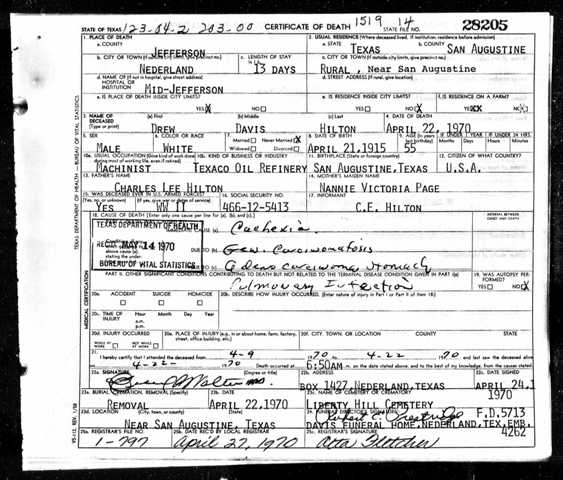 STATE OF TEXAS 123-04-2 203-00 CERTIFICATE OF DEATH 1519 14 STATE FILE NO. 28205
1. PLACE OF DEATH 2. USUAL RESIDENCE (Where deceased lived. If institution, residence before admission)
a. COUNTY JEFFERSON a. STATE TEXAS b. COUNTY SAN AUGUSTINE
b. CITY OR TOWN (If outside city limits, give precinct no.) c. LENGTH OF STAY c. CITY OR TOWN (If outside city limits, give precinct no.)
NEDERLAND 13 DAYS RURAL , Near San Augustine
d. NAME OF (If not in hospital, give street address) HOSPITAL OR INSTITUTION MID-JEFFERSON d. STREET ADDRESS (If rural, give location)
e. IS PLACE OF DEATH INSIDE CITY LIMITS? YES X NO e. IS RESIDENCE INSIDE CITY LIMITS? YES NO f. IS RESIDENCE ON A FARM? YES XX NO
3. NAME OF DECEASED (Type or print) (a) First (b) Middle (c) Last 4. DATE OF DEATH
DREW DAVIS HILTON APRIL 22, 1970
5. SEX 6. COLOR OR RACE 7. Married Never Married X Widowed Divorced 8. DATE OF BIRTH 9. AGE IF UNDER 1 YEAR IF UNDER 24 HRS.
MALE WHITE APRIL 21,1915 55 Months Days Hours Minutes
10a. USUAL OCCUPATION (Give kind of work done during most of working life, even if retired) 10b. KIND OF BUSINESS OR INDUSTRY 11. BIRTHPLACE (State or foreign country) 12. CITIZEN OF WHAT COUNTRY?
MACHINIST TEXACO OIL REFINERY SAN AUGUSTINE,TEXAS U.S.A.
13. FATHER'S NAME 14. MOTHER'S MAIDEN NAME
CHARLES LEE HILTON NANNIE VICTORIA PAGE
15. WAS DECEASED EVER IN U.S. ARMED FORCES? 16. SOCIAL SECURITY NO. 17. INFORMANT
YES WW II 466-12-5413 C.E. HILTON
18. CAUSE OF DEATH (Enter only one cause per line for (a), (b), and (c).) INTERVAL BETWEEN ONSET AND DEATH
TEXAS DEPARTMENT OF HEALTH Cachexia
REC'D MAY 14 1970 DUE TO (b) Gen. Carcinomatosis
BUREAU OF VITAL STATISTICS DUE TO (c) Adenocarcinoma Stomach
PART II OTHER SIGNIFICANT CONDITIONS CONTRIBUTING TO DEATH BUT NOT RELATED TO THE TERMINAL DISEASE CONDITION GIVEN IN PART I(a) 19. WAS AUTOPSY PERFORMED?
Pulmonary Infection YES NO X
20a. ACCIDENT SUICIDE HOMICIDE 20b. DESCRIBE HOW INJURY OCCURRED. (Enter nature of injury in Part I or Part II of item 18)
20c. TIME OF INJURY Hour a.m. p.m. Month Day Year
20d. INJURY OCCURRED WHILE AT WORK NOT WHILE AT WORK 20e. PLACE OF INJURY (e.g., in or about home, farm, factory, street, office building, etc.) 20f. CITY, TOWN, OR LOCATION COUNTY STATE
21. I hereby certify that I attended the deceased from 4-9 1970 to 4-22 1970
4-22 1970 Death occurred at 6:50AM m. on the date stated above, and to the best of my knowledge, from the causes stated.
22a. SIGNATURE (Degree or title) 22b. ADDRESS 22c. DATE SIGNED
MD BOX 1427,NEDERLAND,TEXAS APRIL 24,1970
23a. BURIAL, CREMATION, REMOVAL (Specify) 23b. DATE 23c. NAME OF CEMETERY OR CREMATORY
REMOVAL APRIL 22,1970 LIBERTY HILL CEMETERY
23d. LOCATION (City, town, or county) (State) 24. FUNERAL DIRECTOR'S SIGNATURE F.D.5713
NEAR SAN AUGUSTINE, TEXAS DAVIS FUNERAL HOME,NEDERLAND,TEX,EMB. 4262
25a. REGISTRAR'S FILE NO. 25b. DATE REC'D BY LOCAL REGISTRAR 25c. REGISTRAR'S SIGNATURE
1-797 April 27, 1970 Otta Fletcher
TEXAS DEPARTMENT OF HEALTH — BUREAU OF VITAL STATISTICS
MEDICAL CERTIFICATION
VS-112, REV. 1/58